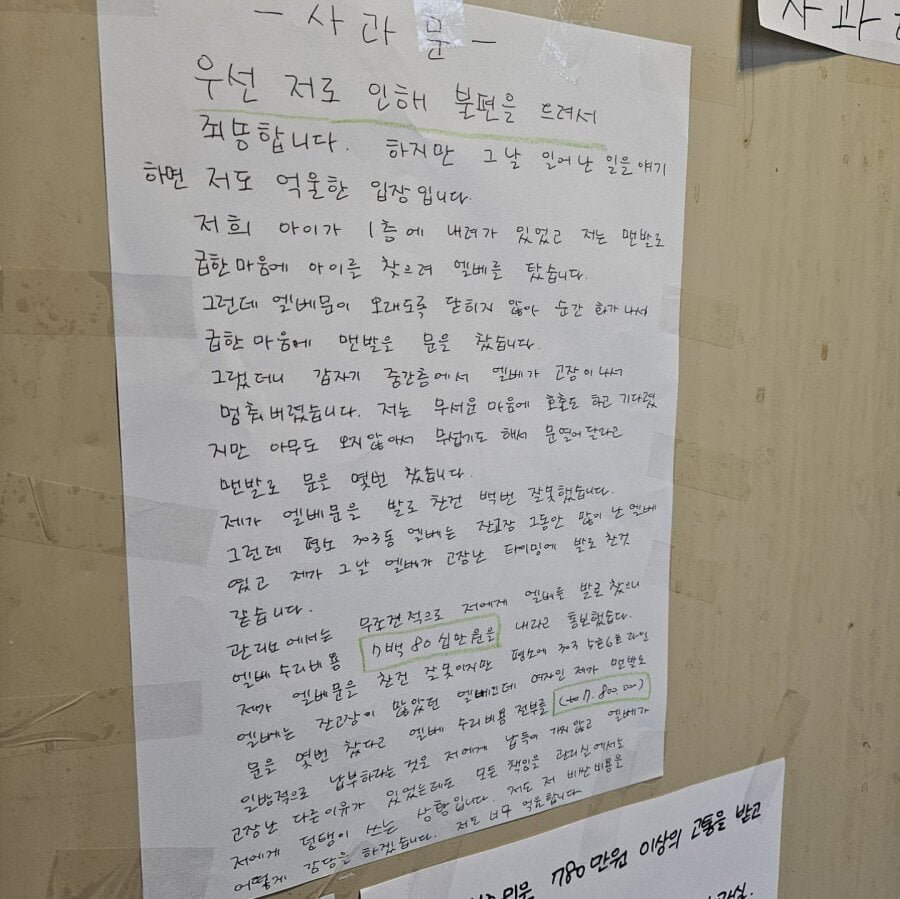 - 사 과 문 -
우선 저로 인해 불편을 드려서
죄송합니다. 하지만 그날 일어난 일을 얘기
하면 저도 억울한 입장입니다.
저희 아이가 1층에 내려가 있었고 저는 맨발로
급한마음에 아이를 찾으려 엘베를 탔습니다.
그런데 엘베문이 오래도록 닫히지 않아 순간 화가나서
급한마음에 맨발을 문을 찼습니다.
그랬더니 갑자기 중간층에서 엘베가 고장이나서
멈춰버렸습니다. 저는 무서운 마음에 호출도 하고 기다렸
지만 아무도 오지않아서 무섭기도 해서 문열어달라고
맨발로 문을 몇번 찼습니다.
제가 엘베문을 발로 찬건 백번 잘못했습니다.
그런데 평소 303동 엘베는 잔고장 그동안 많이 난 엘베
였고 제가 그날 엘베가 고장난 타이밍에 발로 찬것
같습니다.
관리소에서는 무조건적으로 저에게 엘베를 발로 찼으니
엘베 수리비용 7백 80 십만원을 내라고 통보했습니다.
제가 엘베문을 찬건 잘못이지만 평소에 303 5호6호라인
엘베는 잔고장이 많았던 엘베인데 여자인 제가 맨발로
문을 몇번 찼다고 엘베 수리비용 전부를 (7.800.000)
일방적으로 납부하라는 것은 저에게 납득이 가지 않고 엘베가
고장난 다른이유가 있었는데도 모든 책임을 관리실에서는
저에게 덤탱이 쓰는 상황입니다. 저도 저 비싼비용을
어떻게 감당을 하겠습니다. 저도 너무 억울합니다
사과
780만원 이상의 고통을 받고